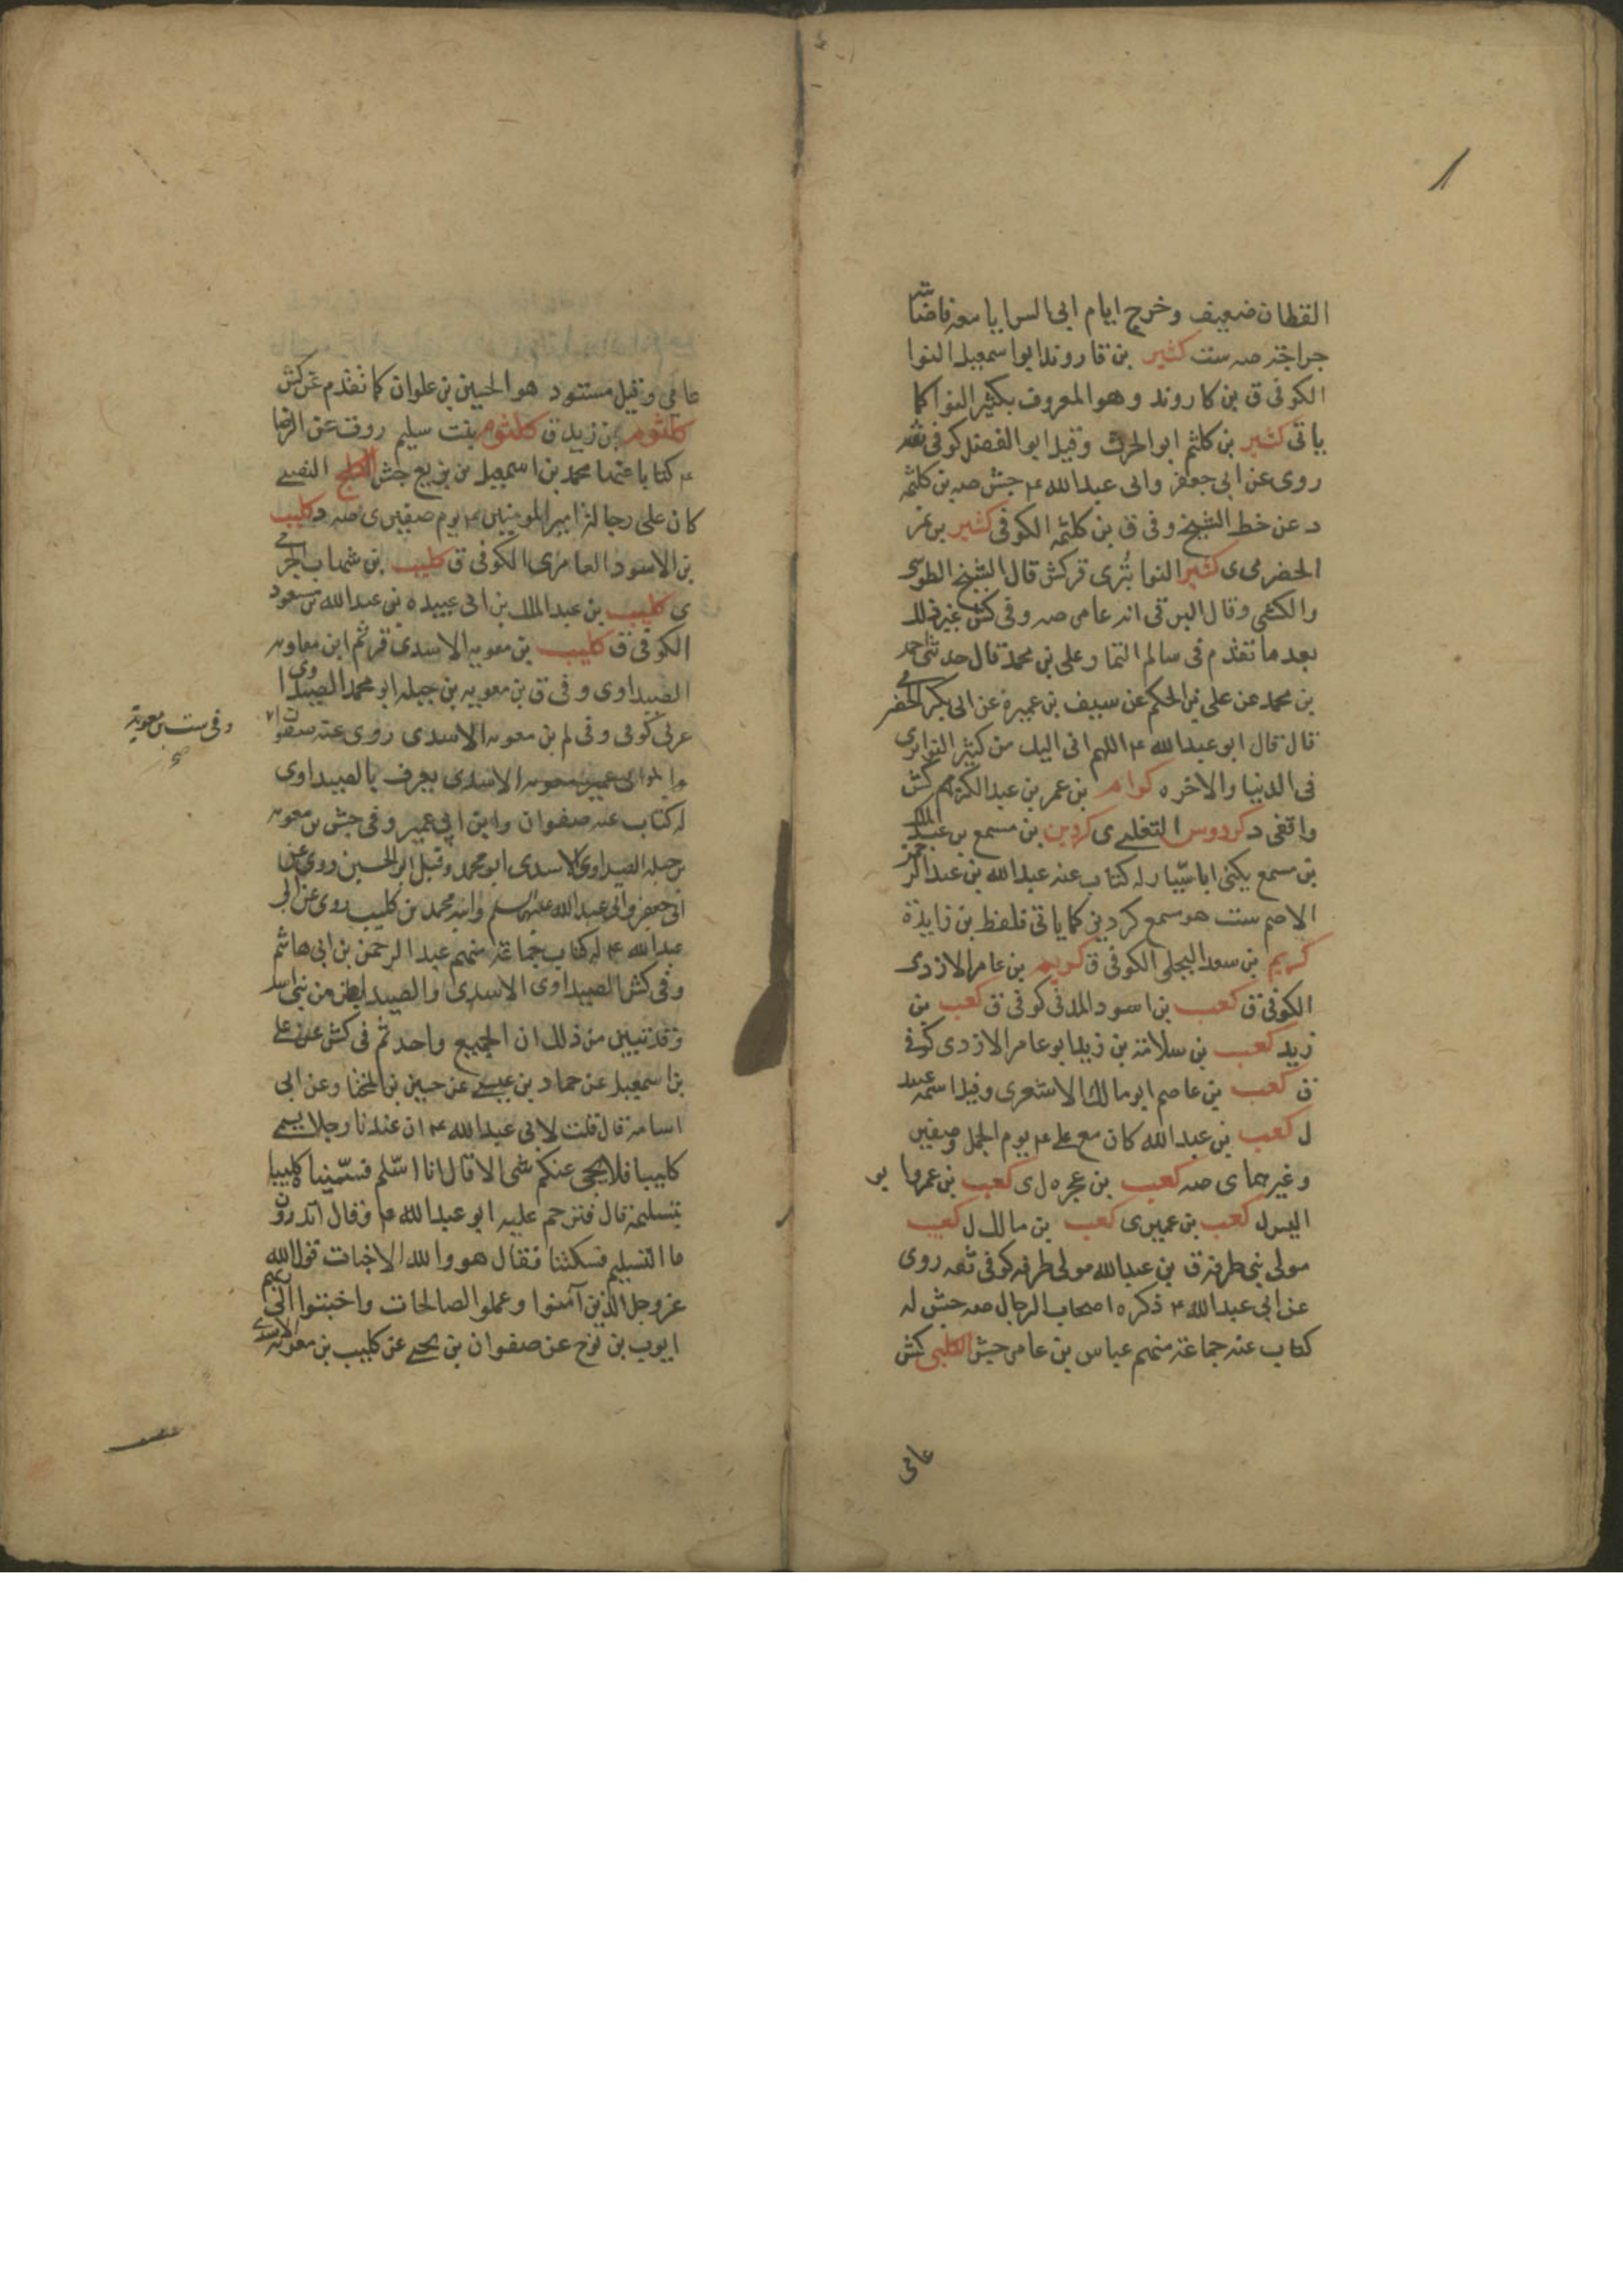 القطان ضعيف وخرج ايام ابى السرايا معه فاصابته
جراحة صه ست كثير بن قاروند ابوا سمعيل النوا
الكوفى ق بن كاروند وهو المعروف بكثير النوا كما
ياتى كثير بن كلثم ابو الحرث وقيل ابو الفضل كوفى ثقه
روى عن ابى جعفر وابى عبد الله ع جش صه بن كلثمه
د عن خط الشيخ وفى ق بن كلثمه الكوفى كثير بن نمر
الحضرمى ى كثير النوا بُترى قر كش قال الشيخ الطوسى
والكشى وقال البرقى انه عامى صه وفى كش غير ذلك
بعد ما تقدم فى سالم التمار وعلى بن محمد قال حدثنى احمد
بن محمد عن على بن الحكم عن سيف بن عميرة عن ابى بكر الحضرمى
قال قال ابو عبد الله ع اللهم انى اليك من كثير النوا برى
فى الدنيا والاخره كرام بن عمر بن عبد الكريم كش
واقفى د كردوس التغلبى ى كردين بن مسمع بن عبد الملك
بن مسمع يكنى ابا سيّار له كتاب عنه عبد الله بن عبد الرحمن
الاصم ست هو مسمع كردين كما ياتى فلفظ بن زايدة
كريم بن سعد البجلى الكوفى ق كريم بن عامر الازدى
الكوفى ق كعب بن اسود المدنى كوفى ق كعب بن
زيد كعب بن سلامة بن زيد ابو عامر الازدى كوفى
ق كعب بن عاصم ابو مالك الاشعرى وقيل اسمه عبيد
ل كعب بن عبد الله كان مع على ع يوم الجمل وصفين
وغيرهما ى صه كعب بن عجره ل ى كعب بن عمرو ابو
اليسر ل كعب بن عمير ى كعب بن مالك ل كعيب
مولى بنى طرفة ق بن عبد الله مولى طرفه كوفى ثقه روى
عن ابى عبد الله ع ذكره اصحاب الرجال صه جش له
كتاب عنه جماعة منهم عباس بن عامر جش الكلبى كش
عامى
عامى وقيل مستور هو الحسين بن علوان كما تقدم عن كش
كلثوم بن زيد ق كلثوم بنت سليم روت عن الرضا
ع كتابا عنها محمد بن اسمعيل بن بزيع جش النصيبى
كان على رجالة امير المومنين ع يوم صفين ى صه د كليب
بن الاسود العامرى الكوفى ق كليب بن شهاب الجرمى
ى كليب بن عبد الملك بن ابى عبيده بن عبد الله بن مسعود
الكوفى ق كليب بن معويه الاسدى قر ثم ابن معاويه
الصيداوى وفى ق بن معويه بن جبله ابو محمد الصيداوى
عربى كوفى وفى لم بن معويه الاسدى روى عنه صفوان
وفى ست بن معوية
الاسدى يعرف بالصيداوى
له كتاب عنه صفوان وابن ابى عمير وفى جش بن معويه
بن جبله الصيداوى الاسدى ابو محمد وقيل ابو الحسين روى عن
ابى جعفر وابى عبد الله عليهما السلم وابنه محمد بن كليب روى عن ابى
عبد الله ع له كتاب جماعة منهم عبد الرحمن بن ابى هاشم
وفى كش الصيداوى الاسدى والصيدا بطن من بنى اسد
وقد تبين من ذلك ان الجميع واحد ثم فى كش عن على
بن اسمعيل عن حماد بن عيسى عن حسين بن المختار وعن ابى
اسامة قال قلت لابى عبد الله ع ان عندنا رجلا يسمى
كليبا فلا يجى عنكم شى الا قال انا اسّلم فسمّيناه كليبا
بتسليمة قال فترحم عليه ابو عبد الله ع وقال اتدرون
ما التسليم فسكتنا فقال هو والله الاخبات قول الله
عز وجل الذين آمنوا وعملوا الصالحات واخبتوا الى ربهم
ايوب بن نوح عن صفوان بن يحيى عن كليب بن معويه الاسدى